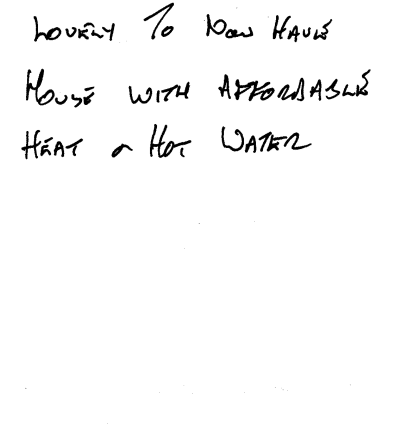 LOVELY TO NOW HAVE
HOUSE WITH AFFORDABLE
HEAT & HOT WATER